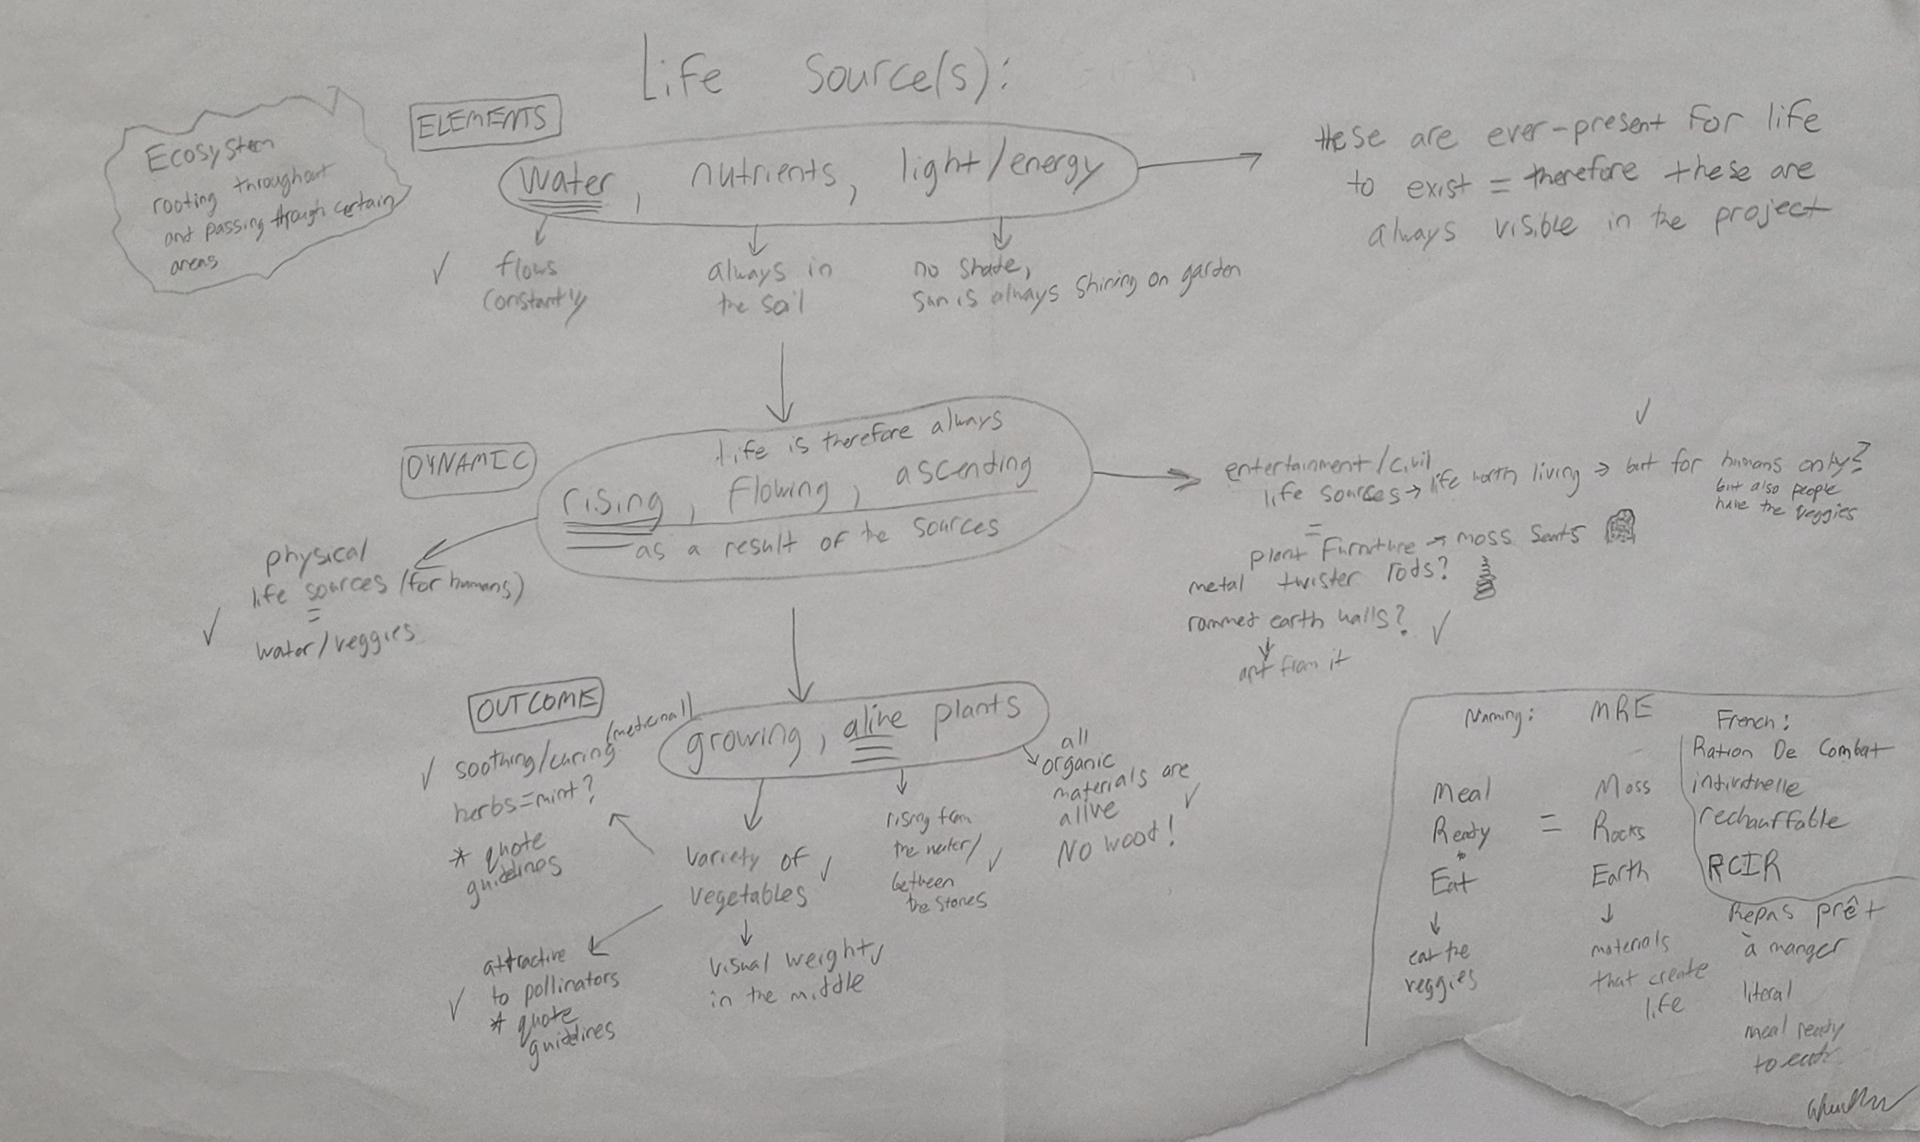 Life Source(s):
Ecosystem
rooting throughout
and passing through certain
areas
ELEMENTS
water, nutrients, light/energy
these are ever-present for life
to exist = therefore these are
always visible in the project
✓ flows
constantly
always in
the soil
no shade,
sun is always shining on garden
DYNAMIC
life is therefore always
rising, flowing, ascending
as a result of the sources
physical
life sources (for humans)
=
✓ water/veggies
✓
entertainment/civil
life sources → life worth living → but for humans only?
but also people
have the veggies
=
plant furniture → moss seats
metal twister rods?
rammed earth walls? ✓
art from it
OUTCOME
growing, alive plants
(medicinal)
✓ soothing/curing
herbs = mint?
* quote
guidelines
variety of ✓
vegetables
rising from
the water/ ✓
between
the stones
all
organic
materials are
alive ✓
No wood!
attractive
✓ to pollinators
* quote
guidelines
visual weight ✓
in the middle
Naming: MRE
Meal
Ready
to
Eat
eat the
veggies
=
Moss
Rocks
Earth
materials
that create
life
French:
Ration De Combat
individuelle
rechauffable
RCIR
Repas prêt
à manger
literal
meal ready
to eat